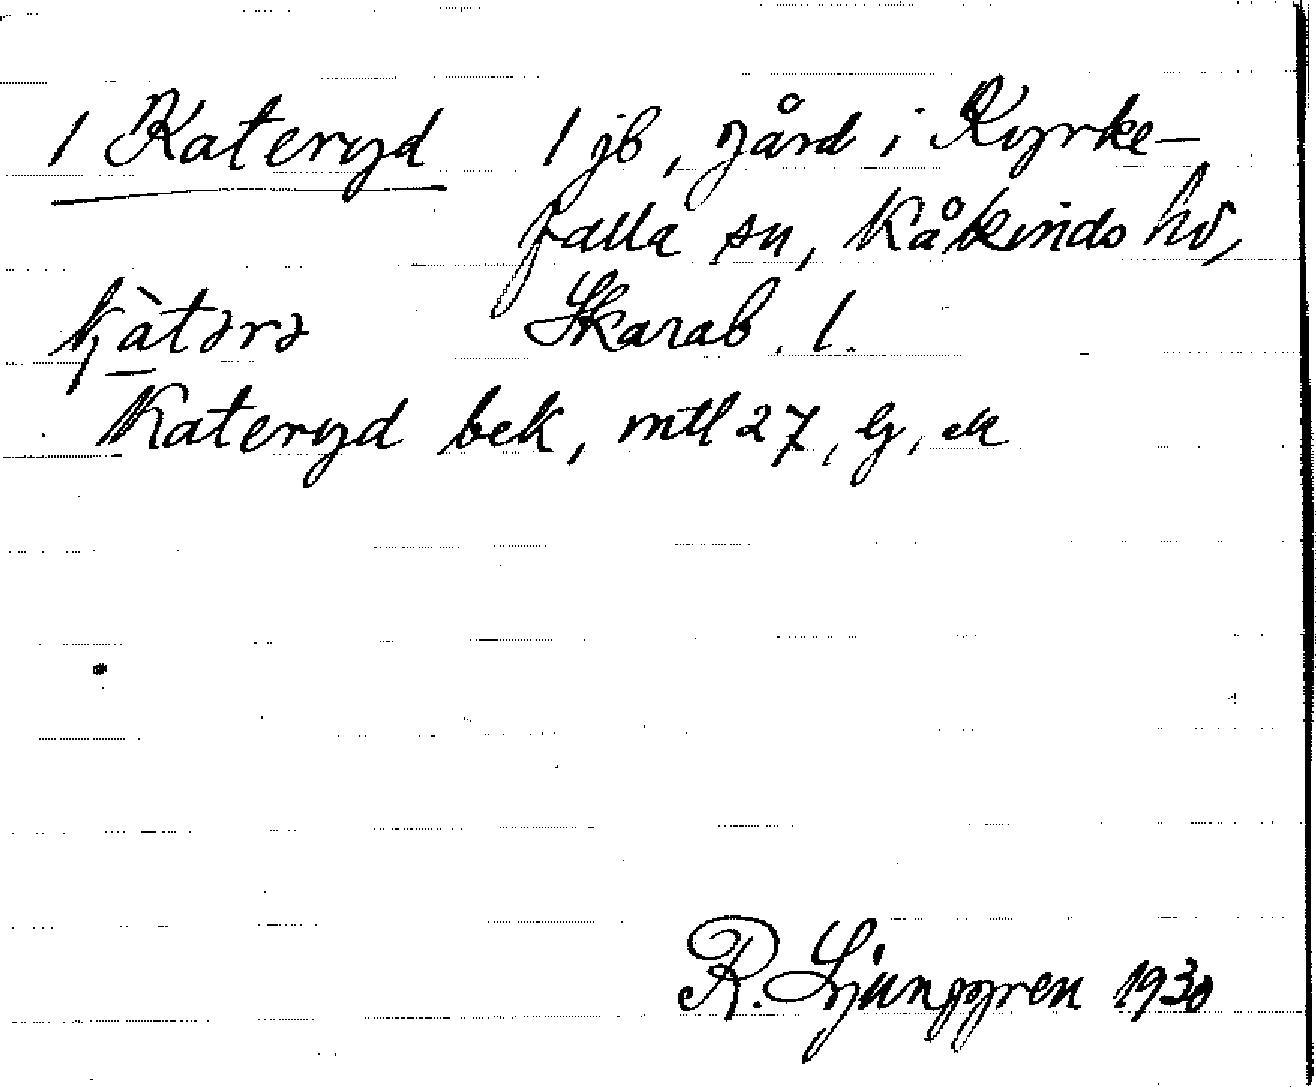 1 Kateryd 1 jb, gård i Kyrke-
falla sn, Kåkinds hd,
kàtərə Skarab. l.
Kateryd bek, mtl 27, Gj, ek
R. Ljunggren 1930